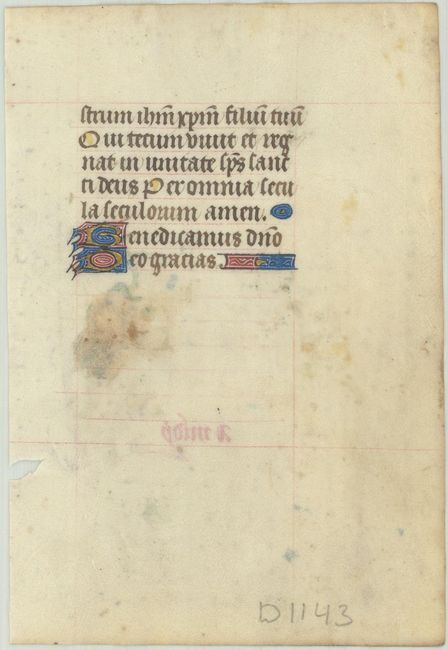 strum ihm̄ xp̄m filiū tuū
Qui tecum viuit et reg
nat in unitate sp̄s sanc
ti deus Per omnia secu
la seculorum amen.
Benedicamus dn̄o
Deo gracias
D1143